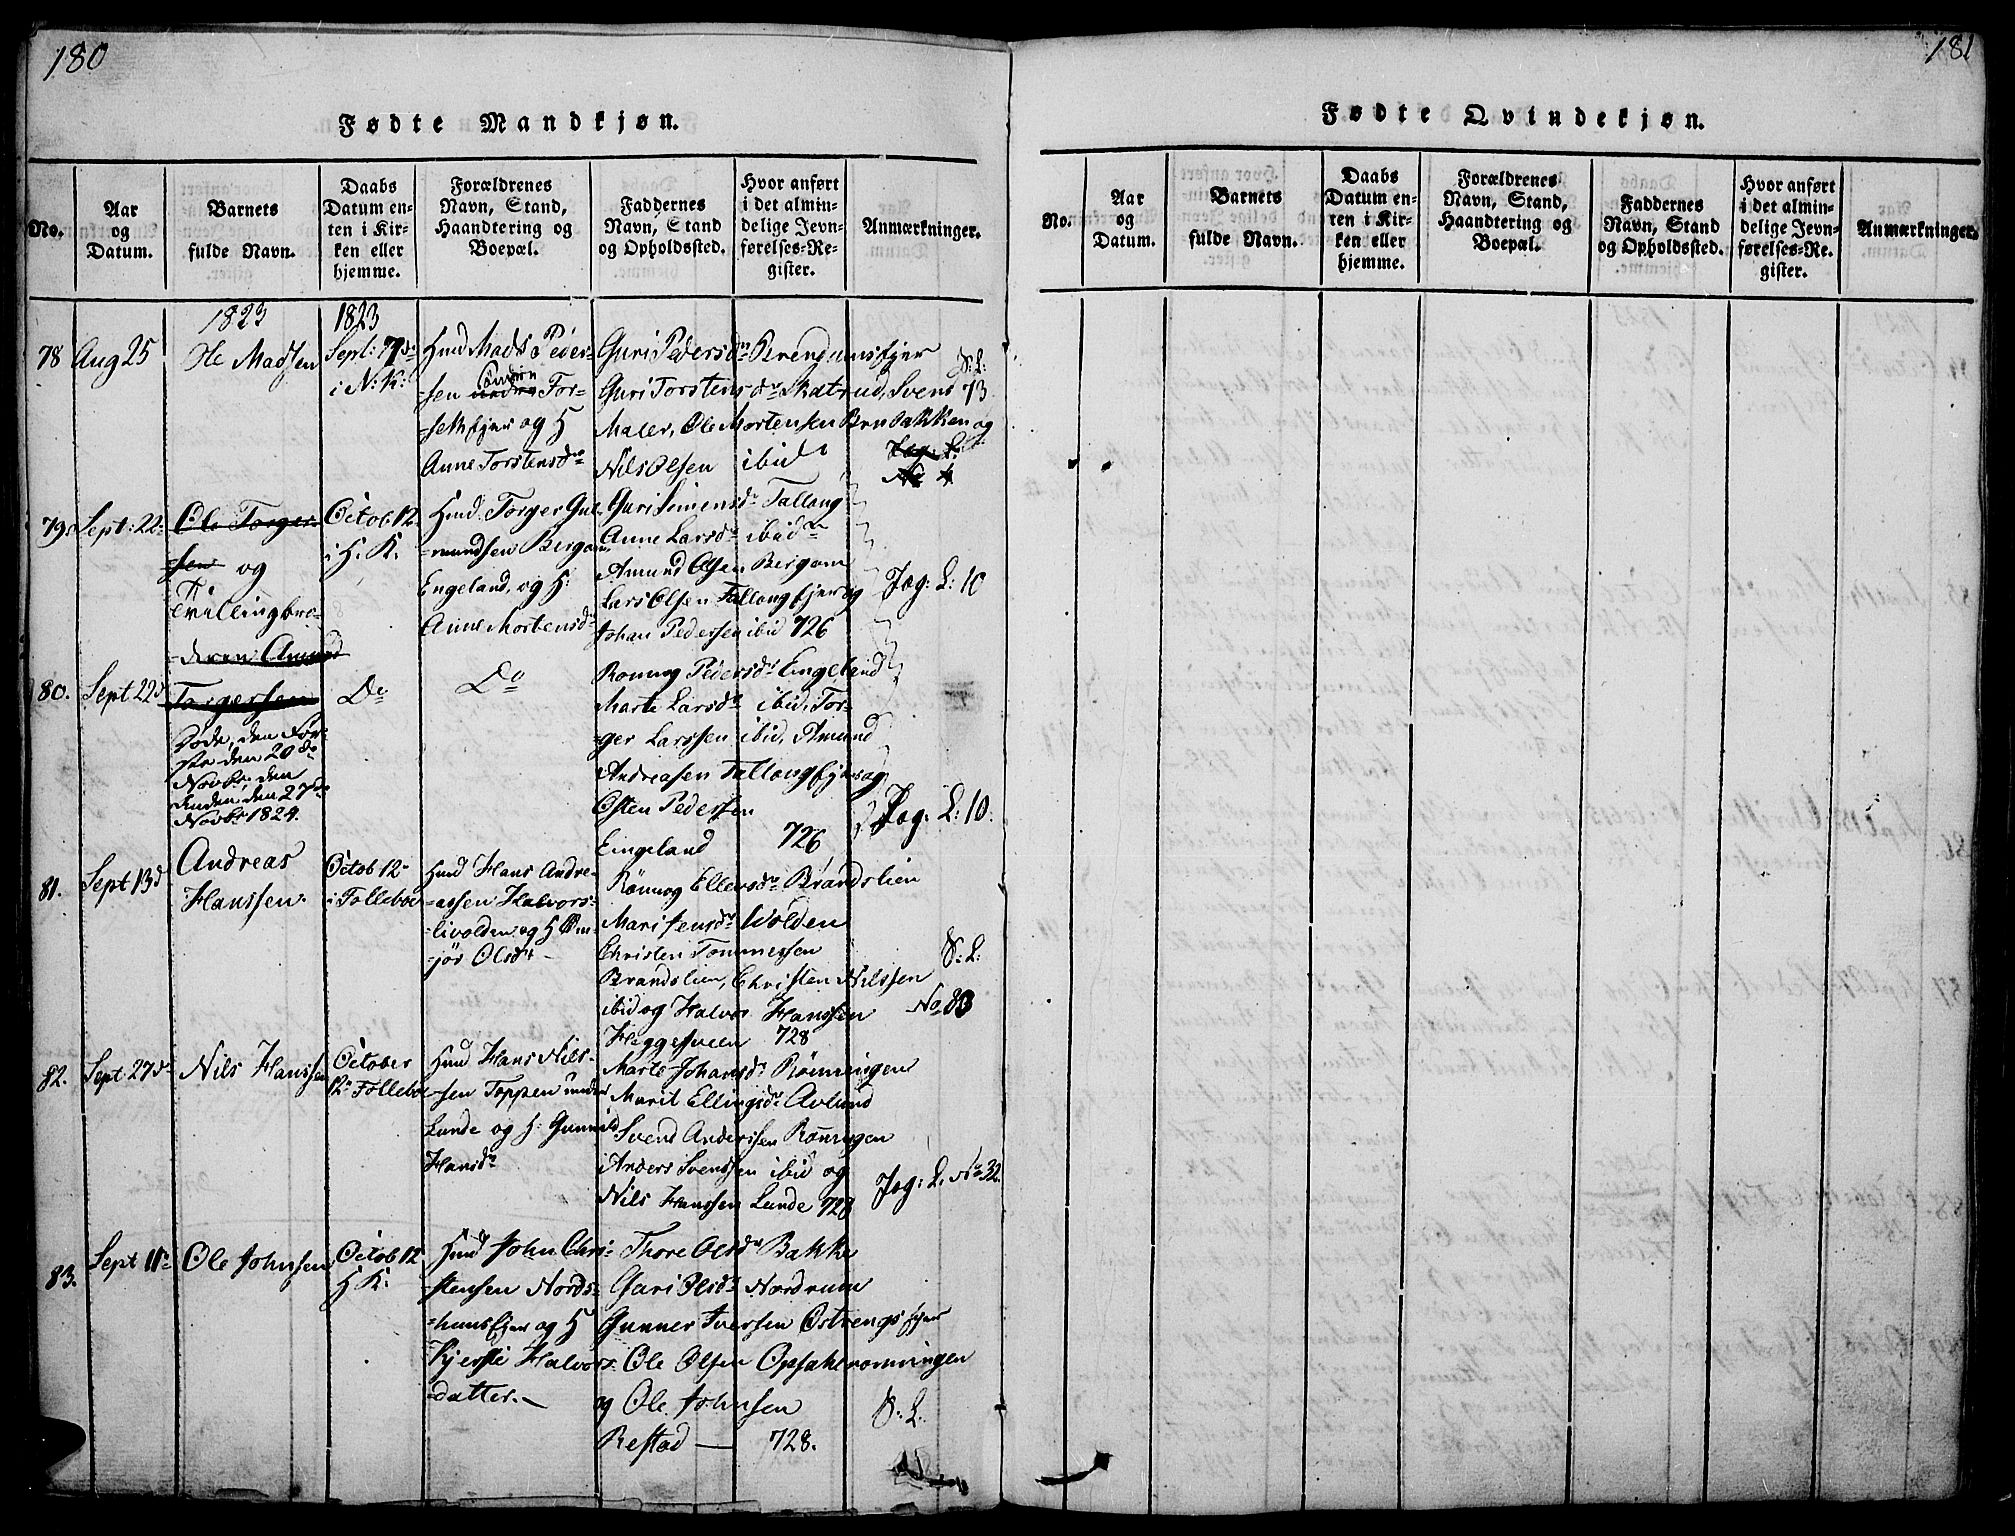 180
Fødte Mandkjøn.
No.
Aar
og
Datum.
Barnets
fulde Navn.
Daabs
Datum en-
ten i Kir-
ken eller
hjemme.
Forældrenes
Navn, Stand,
Haandtering og
Boepæl.
Faddernes
Navn, Stand
og Opholdssted.
Hvor anført
i det almin-
delige Jevn-
førelses-Re-
gister.
Anmærkninger.
1823
1823
78
Aug 25
Ole Madsen
Sept: 7de
i N: K:
Hmd Mads Peder-
sen Søndre For-
sethejer og H
Anne Torstensdr
Guri Pedersdr
Guri Torstensdr Skatrud, Svend
Maler, Ole Mortensen Brubakken og
Nils Olsen ibid
S: L:
73
79
Sept: 22
Ole Torger-
sen og
Tvillingbro-
deren Amund
October 12
i H. K.
Hmd. Torger Gul-
Engeland, og H:
Anne Mortensdr
Guri Simensdr Fallang
Anne Larsdr ibid
Amund Olsen Bergom
Lars Olsen Fallangejer og
Johan Pedersen ibid 726
Jog: L: 10
80.
Sept 22d
Torgersen
Døde, den Før-
ste den 20de
Novbr, den
Anden, den 27de
Novbr 1824.
Do
Do
Ronnog Pedersdr Eingeland
Marte Larsdr ibid, Tor-
ger Larssen ibid, Amund
Andreasen Fallangejer og
Osten Pedersen
Eingeland 726
Jog: L: 10.
81.
Sept 13d
Andreas
Hanssen.
Octob 12
i Folleboe
Hmd Hans Andre-
assen Halvors-
livolden og H Øn-
jør Olsdr
Rönnog Ellersdr Brandslien
Mari Jensdr Wolden
Christen Tommessen
Brandslien, Christen Nilssen
ibid og Halvor Hanssen
Heggesveen 728
S: L:
No 83
82.
Sept 27de
Nils Hanssen
October
12 Follebo
Hmd Hans Nils-
sen Toppen under
Lunde og H: Gunnild
Hansdr
Marte Johansdr Rönningen
Marit Ellingsdr Avlund
Svend Anderssen Rönningen
Anders Svendsen ibid og
Nils Hanssen Lunde 728
Jog: L. No 32.
83.
Sept 11
Ole Johnsen
Octob 12
H K:
Hmd John Chri-
stensen Nords-
Kjersti Halvors
datter.
Thore Olsdr Bakke
Guri Olsdr Nordrum
Gunner Iversen Ostrengs ejer
Ole Olsen Opsahlronningen
og Ole Johnsen
Restad 728.
S: L.
181
Fødte Qvindekjøn.
No.
Aar
og
Datum.
Barnets
fulde Navn.
Daabs
Datum en-
ten i Kir-
ken eller
hjemme.
Forældrenes
Navn, Stand,
Haandtering og
Boepæl.
Faddernes
Navn, Stand
og Opholdssted.
Hvor anført
i det almin-
delige Jevn-
førelses-Re-
gister.
Anmærkninger.